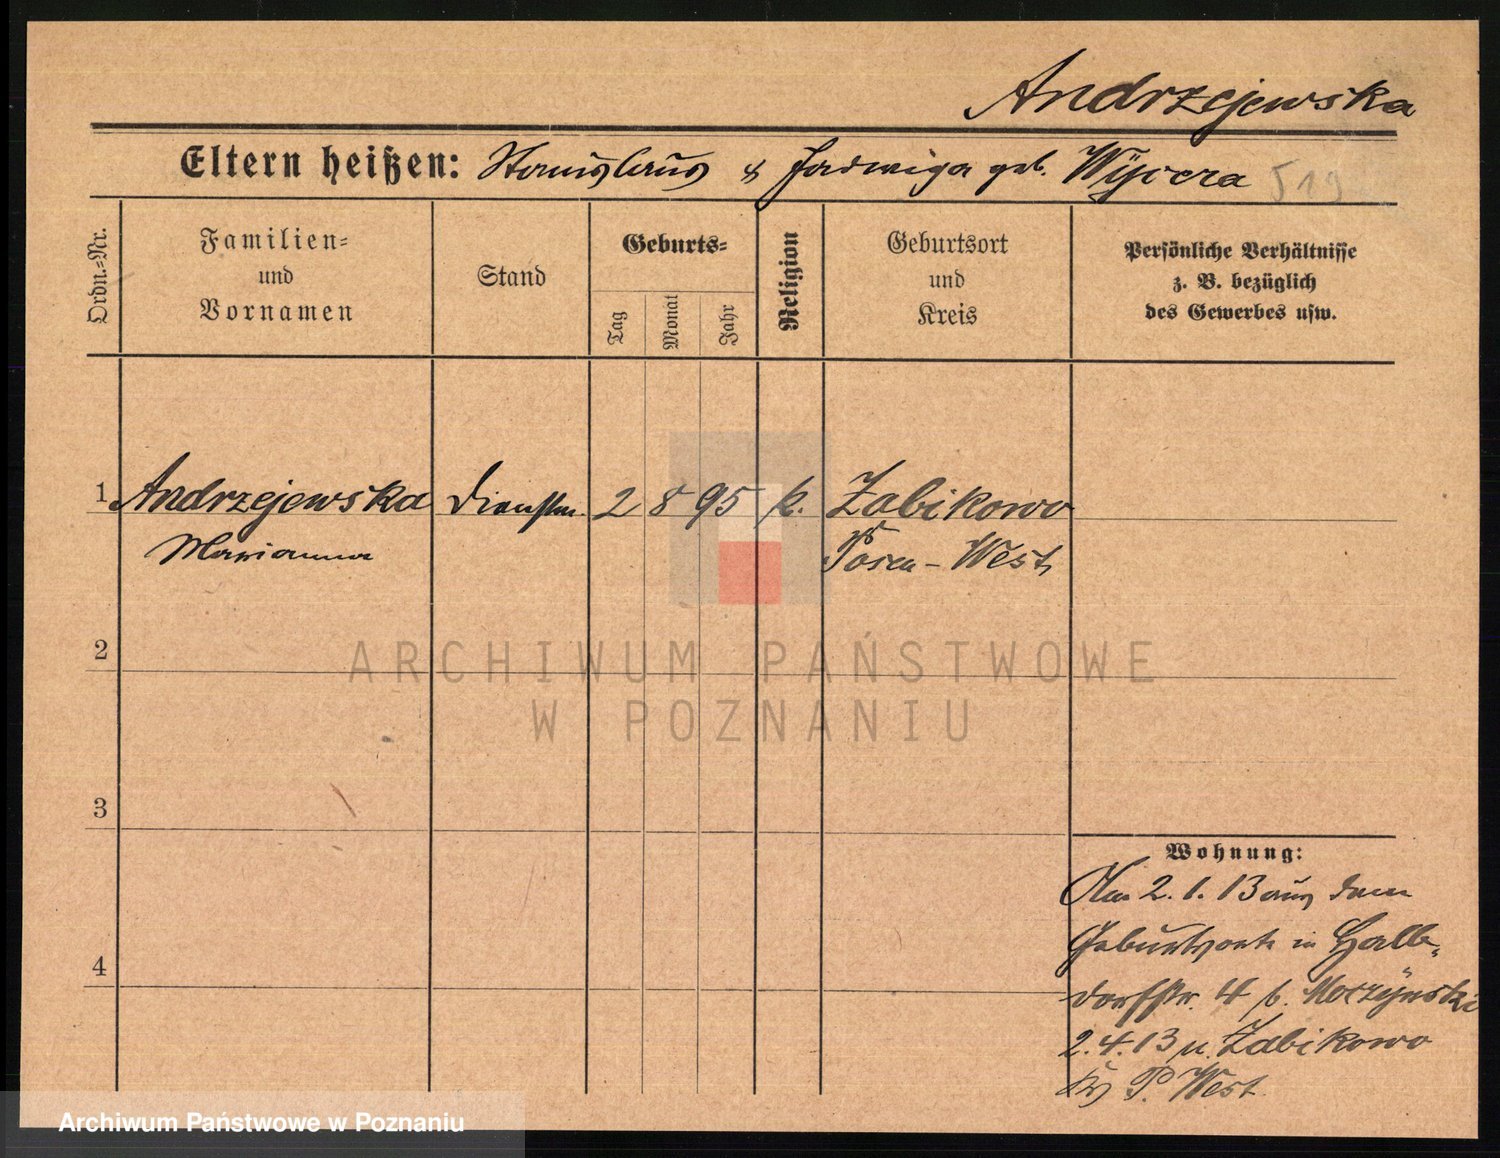 Andrzejewska
Eltern heißen: Stanislaus & Jadwiga geb. Wyicera 519
Ordn.-Nr.
Familien- und Vornamen
Stand
Geburts-
Tag
Monat
Jahr
Religion
Geburtsort und Kreis
Persönliche Verhältnisse
z. B. bezüglich
des Gewerbes usw.
1 Andrzejewska Dienstm. 2 8 95 k. Zabikowo
Marianna Posen-West
2
3
4
Wohnung:
Am 2.1.13 aus dem
Geburtsorte in Halb-
dorfstr. 4 b. Moczÿnski
2.4.13 n. Zabikowo
Krs P. West.
ARCHIWUM PAŃSTWOWE
W POZNANIU
Archiwum Państwowe w Poznaniu